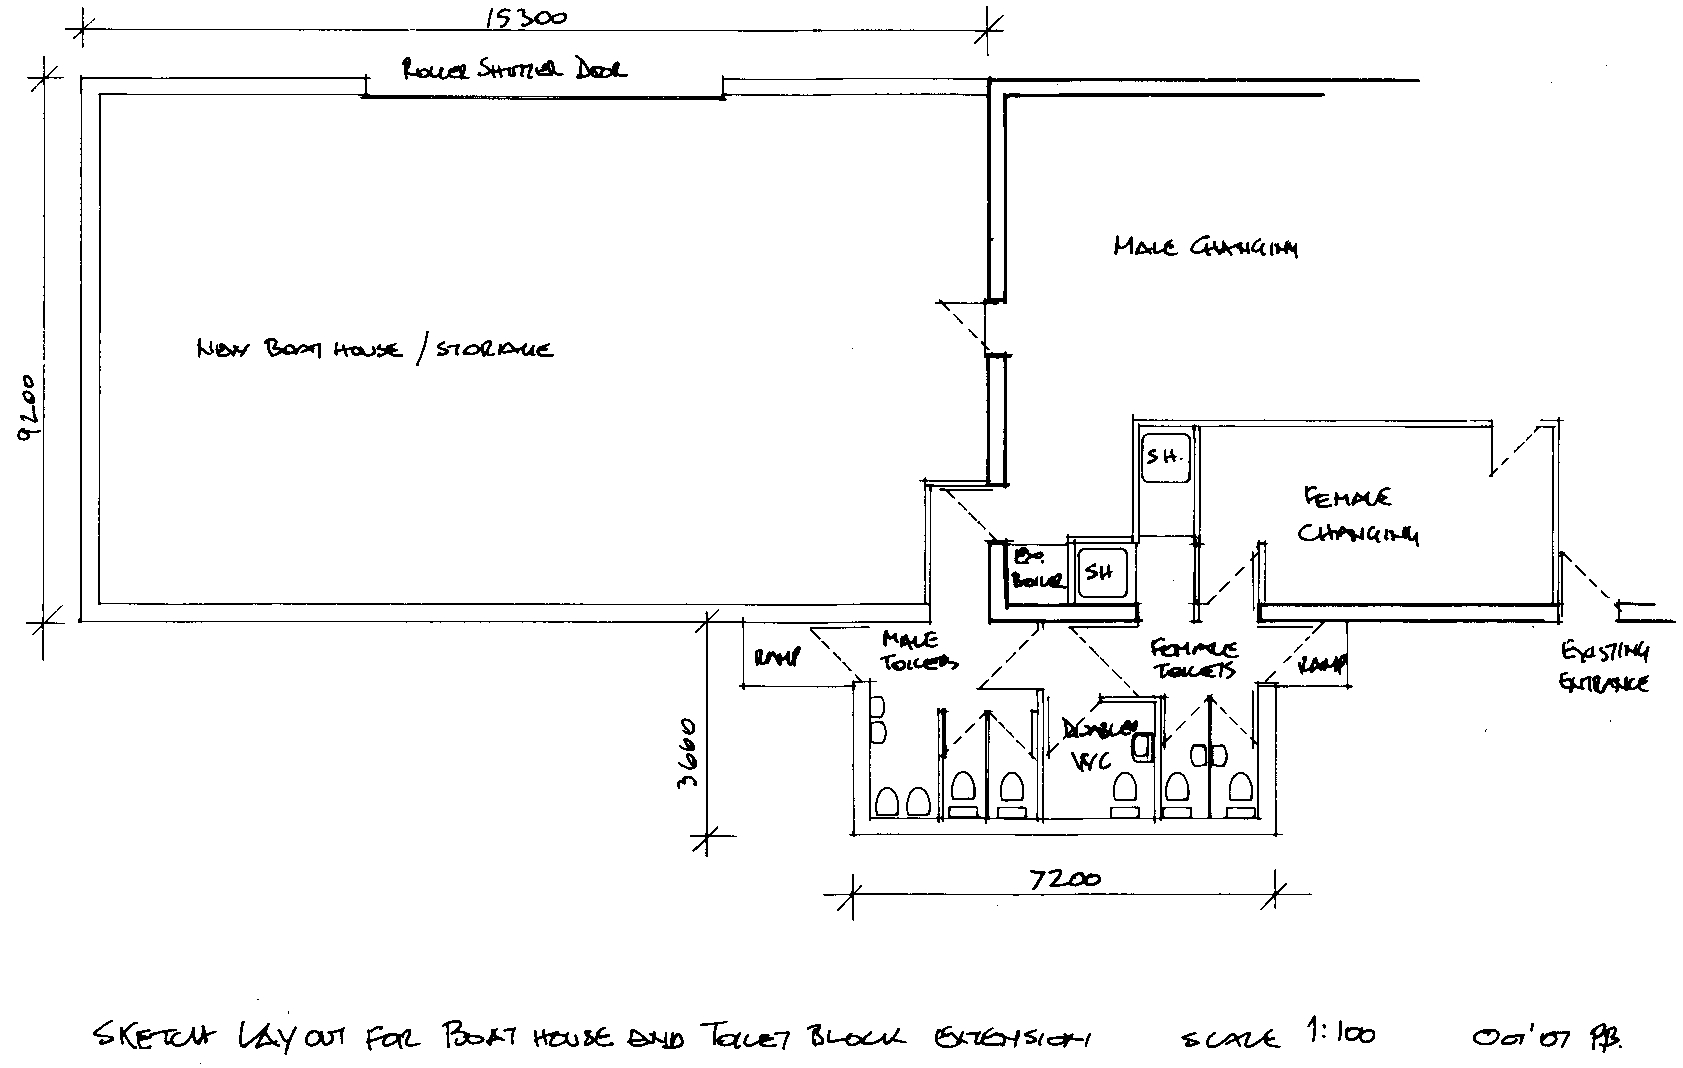 15300
ROLLER SHUTTER DOOR
MALE CHANGING
NEW BOAT HOUSE / STORAGE
9200
SH.
FEMALE
CHANGING
BOILER
SH
MALE
TOILETS
FEMALE
TOILETS
RAMP
RAMP
EXISTING
ENTRANCE
DISABLED
WC
3660
7200
SKETCH LAYOUT FOR BOAT HOUSE AND TOILET BLOCK EXTENSION SCALE 1:100 OCT'07 P.B.